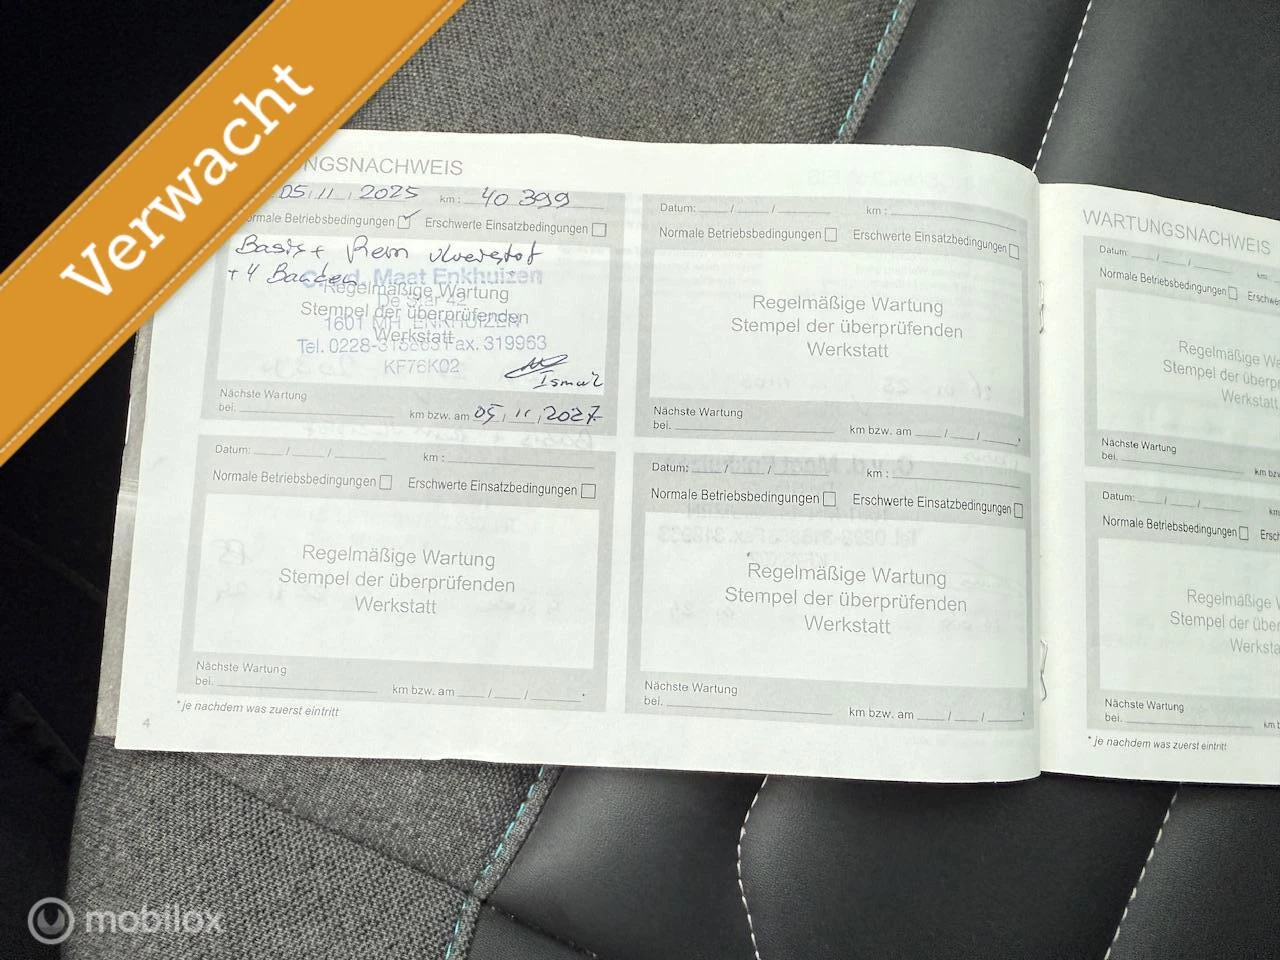 Verwacht
NGSNACHWEIS
05, 11, 2025 km: 40 399
ormale Betriebsbedingungen Erschwerte Einsatzbedingungen
Basis + Rem vloeistof
+ 4 Banden
d. Maat Enkhuizen
Regelmäßige Wartung
De Star 42
Stempel der überprüfenden
1601 MH ENKHUIZEN
Werkstatt
Tel. 0228- Fax. 319963
KF76K02
Ismail
Nächste Wartung
bei: km bzw. am 05, 11, 2027
Datum: / / km :
Normale Betriebsbedingungen Erschwerte Einsatzbedingungen
Regelmäßige Wartung
Stempel der überprüfenden
Werkstatt
Nächste Wartung
bei. km bzw. am / / *
Datum: / / km :
Normale Betriebsbedingungen Erschwerte Einsatzbedingungen
Regelmäßige Wartung
Stempel der überprüfenden
Werkstatt
Nächste Wartung
bei. km bzw. am / / *
* je nachdem was zuerst eintritt
4
Datum: / / km :
Normale Betriebsbedingungen Erschwerte Einsatzbedingungen
Regelmäßige Wartung
Stempel der überprüfenden
Werkstatt
Nächste Wartung
bei. km bzw. am / / *
WARTUNGSNACHWEIS
Datum: / / km:
Normale Betriebsbedingungen Erschwe
Regelmäßige Wa
Stempel der überp
Werksta
Nächste Wartung
bei. km bzw
Datum: / / km
Normale Betriebsbedingungen Ersch
Regelmäßige W
Stempel der über
Werksta
Nächste Wartung
bei: km b
* je nachdem was zuerst eintritt
mobilox